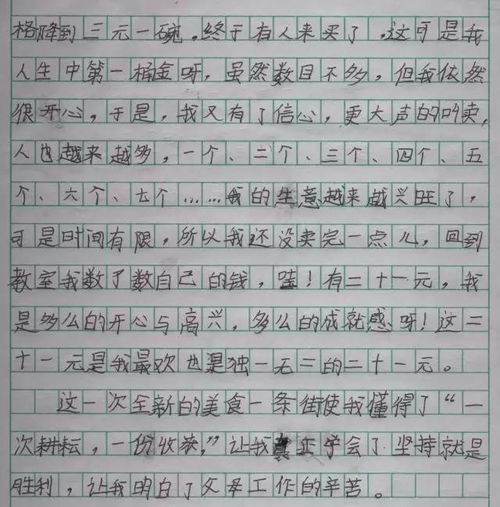 格降到三元一碗。终于有人来买了,这可是我
人生中第一桶金呀,虽然数目不多,但我依然
很开心,于是,我又有了信心,更大声的叫卖,
人也越来越多,一个、二个、三个、四个、五
个、六个、七个……我的生意越来越兴旺了,
可是时间有限,所以我还没卖完一点儿,回到
教室我数了数自己的钱,哇!有二十一元,我
是多么的开心与高兴,多么的成就感呀!这二
十一元是我最欢也是独一无二的二十一元。
这一次全新的美食一条街使我懂得了“一
次耕耘,一份收获,”让我真正学会了坚持就是
胜利,让我明白了父母工作的辛苦。